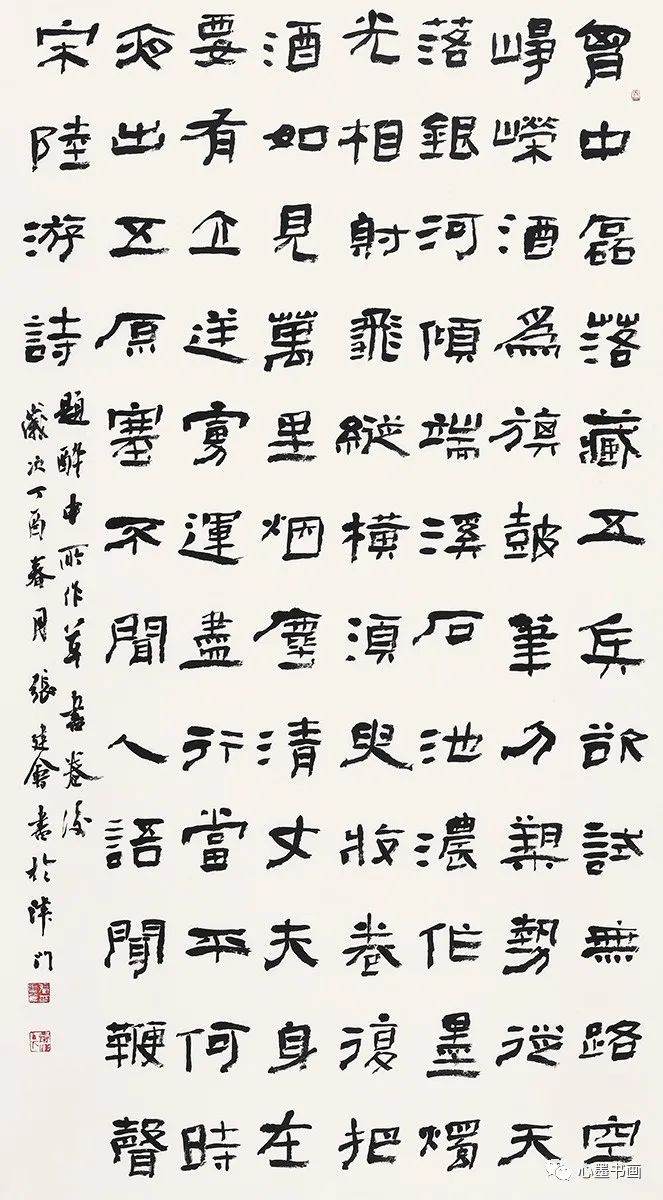 胷中磊落藏五兵欲試無路空
崢嶸酒爲旗鼓筆刀槊勢從天
落銀河傾端溪石池濃作墨燭
光相射飛縱橫須臾收卷復把
酒如見萬里烟塵清丈夫身在
要有立逆虜運盡行當平何時
夜出五原塞不聞人語聞鞭聲
宋陸游詩
題醉中所作草書卷後
歲次丁酉春月張建會書於津門
心墨书画